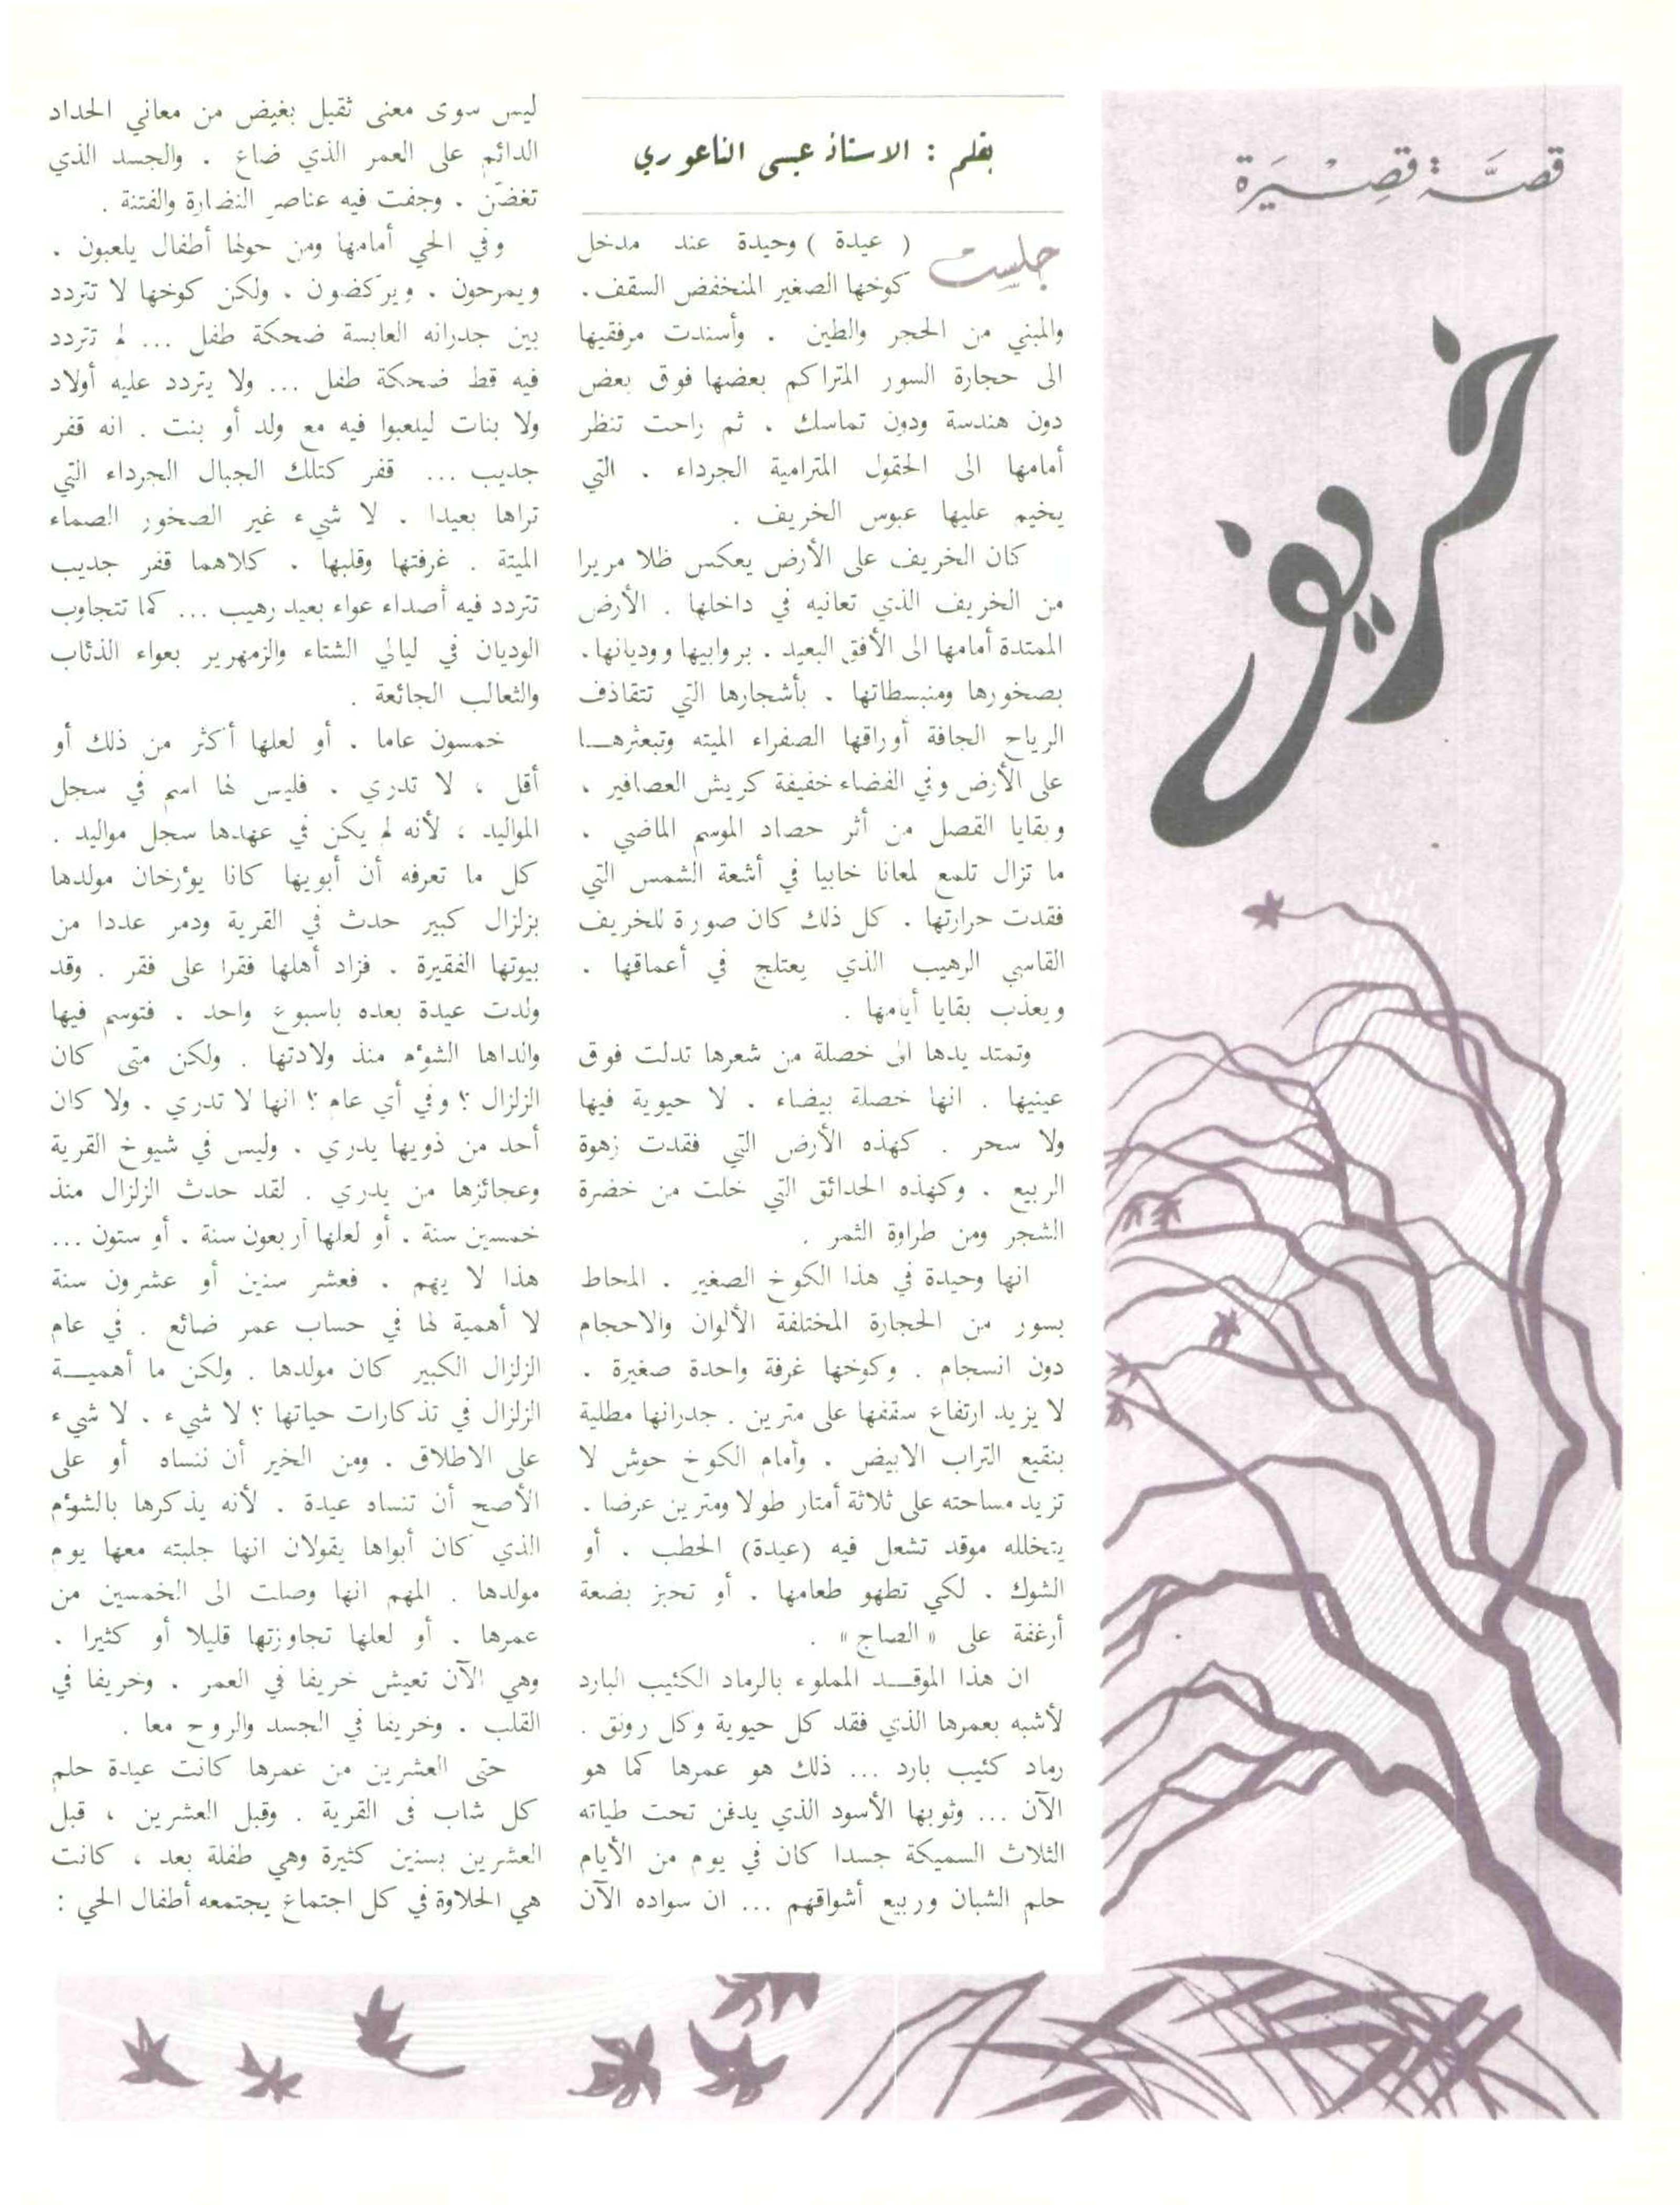 قصَّة قصِيْرَة
خريف
بقلم : الاستاذ عيسى الناعوري
جلست ( عيدة ) وحيدة عند مدخل
كوخها الصغير المنخفض السقف .
والمبني من الحجر والطين . وأسندت مرفقيها
الى حجارة السور المتراكم بعضها فوق بعض
دون هندسة ودون تماسك . ثم راحت تنظر
أمامها الى الحقول المترامية الجرداء . التي
يخيم عليها عبوس الخريف .
كان الخريف على الأرض يعكس ظلا مريرا
من الخريف الذي تعانيه في داخلها . الأرض
الممتدة أمامها الى الأفق البعيد . بروابيها ووديانها .
بصخورها ومنبسطاتها . بأشجارها التي تتقاذف
الرياح الجافة أوراقها الصفراء الميته وتبعثرهــا
على الأرض وفي الفضاء خفيفة كريش العصافير .
وبقايا القصل من أثر حصاد الموسم الماضي .
ما تزال تلمع لمعانا خابيا في أشعة الشمس التي
فقدت حرارتها . كل ذلك كان صورة للخريف
القاسي الرهيب الذي يعتلج في أعماقها .
ويعذب بقايا أيامها .
وتمتد يدها الى خصلة من شعرها تدلت فوق
عينيها . انها خصلة بيضاء . لا حيوية فيها
ولا سحر . كهذه الأرض التي فقدت زهوة
الربيع . وكهذه الحدائق التي خلت من خضرة
الشجر ومن طراوة الثمر .
انها وحيدة في هذا الكوخ الصغير . المحاط
بسور من الحجارة المختلفة الألوان والاحجام
دون انسجام . وكوخها غرفة واحدة صغيرة .
لا يزيد ارتفاع سقفها على مترين . جدرانها مطلية
بنقيع التراب الابيض . وأمام الكوخ حوش لا
تزيد مساحته على ثلاثة أمتار طولا ومترين عرضا .
يتخلله موقد تشعل فيه (عيدة) الحطب . أو
الشوك . لكي تطهو طعامها . أو تخبز بضعة
أرغفة على « الصاج » .
ان هذا الموقــد المملوء بالرماد الكئيب البارد
لأشبه بعمرها الذي فقد كل حيوية وكل رونق .
رماد كئيب بارد ... ذلك هو عمرها كما هو
الآن ... وثوبها الأسود الذي يدفن تحت طياته
الثلاث السميكة جسدا كان في يوم من الأيام
حلم الشبان وربيع أشواقهم ... ان سواده الآن
ليس سوى معنى ثقيل بغيض من معاني الحداد
الدائم على العمر الذي ضاع . والجسد الذي
تغضّن . وجفت فيه عناصر النضارة والفتنة .
وفي الحي أمامها ومن حولها أطفال يلعبون .
ويمرحون . ويركضون . ولكن كوخها لا تتردد
بين جدرانه العابسة ضحكة طفل ... لم تتردد
فيه قط ضحكة طفل ... ولا يتردد عليه أولاد
ولا بنات ليلعبوا فيه مع ولد أو بنت . انه قفر
جديب ... قفر كتلك الجبال الجرداء التي
تراها بعيدا . لا شيء غير الصخور الصماء
الميتة . غرفتها وقلبها . كلاهما قفر جديب
تتردد فيه أصداء عواء بعيد رهيب ... كما تتجاوب
الوديان في ليالي الشتاء والزمهرير بعواء الذئاب
والثعالب الجائعة .
خمسون عاما . أو لعلها أكثر من ذلك أو
أقل ، لا تدري . فليس لها اسم في سجل
المواليد ، لأنه لم يكن في عهدها سجل مواليد .
كل ما تعرفه أن أبويها كانا يؤرخان مولدها
بزلزال كبير حدث في القرية ودمر عددا من
بيوتها الفقيرة . فزاد أهلها فقرا على فقر . وقد
ولدت عيدة بعده باسبوع واحد . فتوسم فيها
والداها الشؤم منذ ولادتها . ولكن متى كان
الزلزال ؟ وفي أي عام ؟ انها لا تدري . ولا كان
أحد من ذويها يدري . وليس في شيوخ القرية
وعجائزها من يدري . لقد حدث الزلزال منذ
خمسين سنة . أو لعلها أربعون سنة . أو ستون ...
هذا لا يهم . فعشر سنين أو عشرون سنة
لا أهمية لها في حساب عمر ضائع . في عام
الزلزال الكبير كان مولدها . ولكن ما أهميــة
الزلزال في تذكارات حياتها ؟ لا شيء . لا شيء
على الاطلاق . ومن الخير أن ننساه أو على
الأصح أن تنساه عيدة . لأنه يذكرها بالشؤم
الذي كان أبواها يقولان انها جلبته معها يوم
مولدها . المهم انها وصلت الى الخمسين من
عمرها . أو لعلها تجاوزتها قليلا أو كثيرا .
وهي الآن تعيش خريفا في العمر . وخريفا في
القلب . وخريفا في الجسد والروح معا .
حتى العشرين من عمرها كانت عيدة حلم
كل شاب فى القرية . وقبل العشرين ، قبل
العشرين بسنين كثيرة وهي طفلة بعد ، كانت
هي الحلاوة في كل اجتماع يجتمعه أطفال الحي :